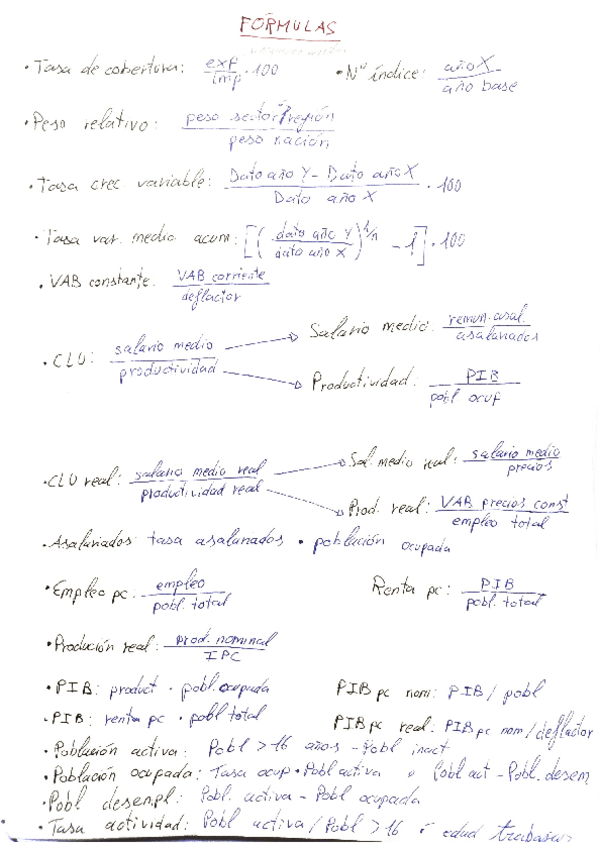 FORMULAS
• Tasa de cobertura: exp/imp · 100 • Nº índice: año X/año base
• Peso relativo: peso sector/región / peso nación
• Tasa crec variable: Dato año Y - Dato año X / Dato año X · 100
• Tasa var. medio acum: [(dato año Y/dato año X)^1/n - 1] · 100
• VAB constante: VAB corriente/deflactor
• CLU: salario medio/productividad → Salario medio: remun. asal./asalariados
→ Productividad: PIB/pobl ocup
• CLU real: salario medio real/productividad real → Sal. medio real: salario medio/precios
→ Prod. real: VAB precios const/empleo total
• Asalariados tasa asalariados · población ocupada
• Empleo pc: empleo/pobl. total Renta pc: PIB/pobl. total
• Produción real: prod. nominal/IPC
• PIB: product · pobl. ocupada PIB pc nom: PIB / pobl
• PIB: renta pc · pobl total PIB pc real: PIB pc nom / deflactor
• Población activa: Pobl > 16 años - Pobl inact
• Población ocupada: Tasa ocup · Pobl activa o Pobl act - Pobl. desem
• Pobl desempl: Pobl. activa - Pobl ocupada
• Tasa actividad: Pobl activa / Pobl > 16 ó edad trabajar